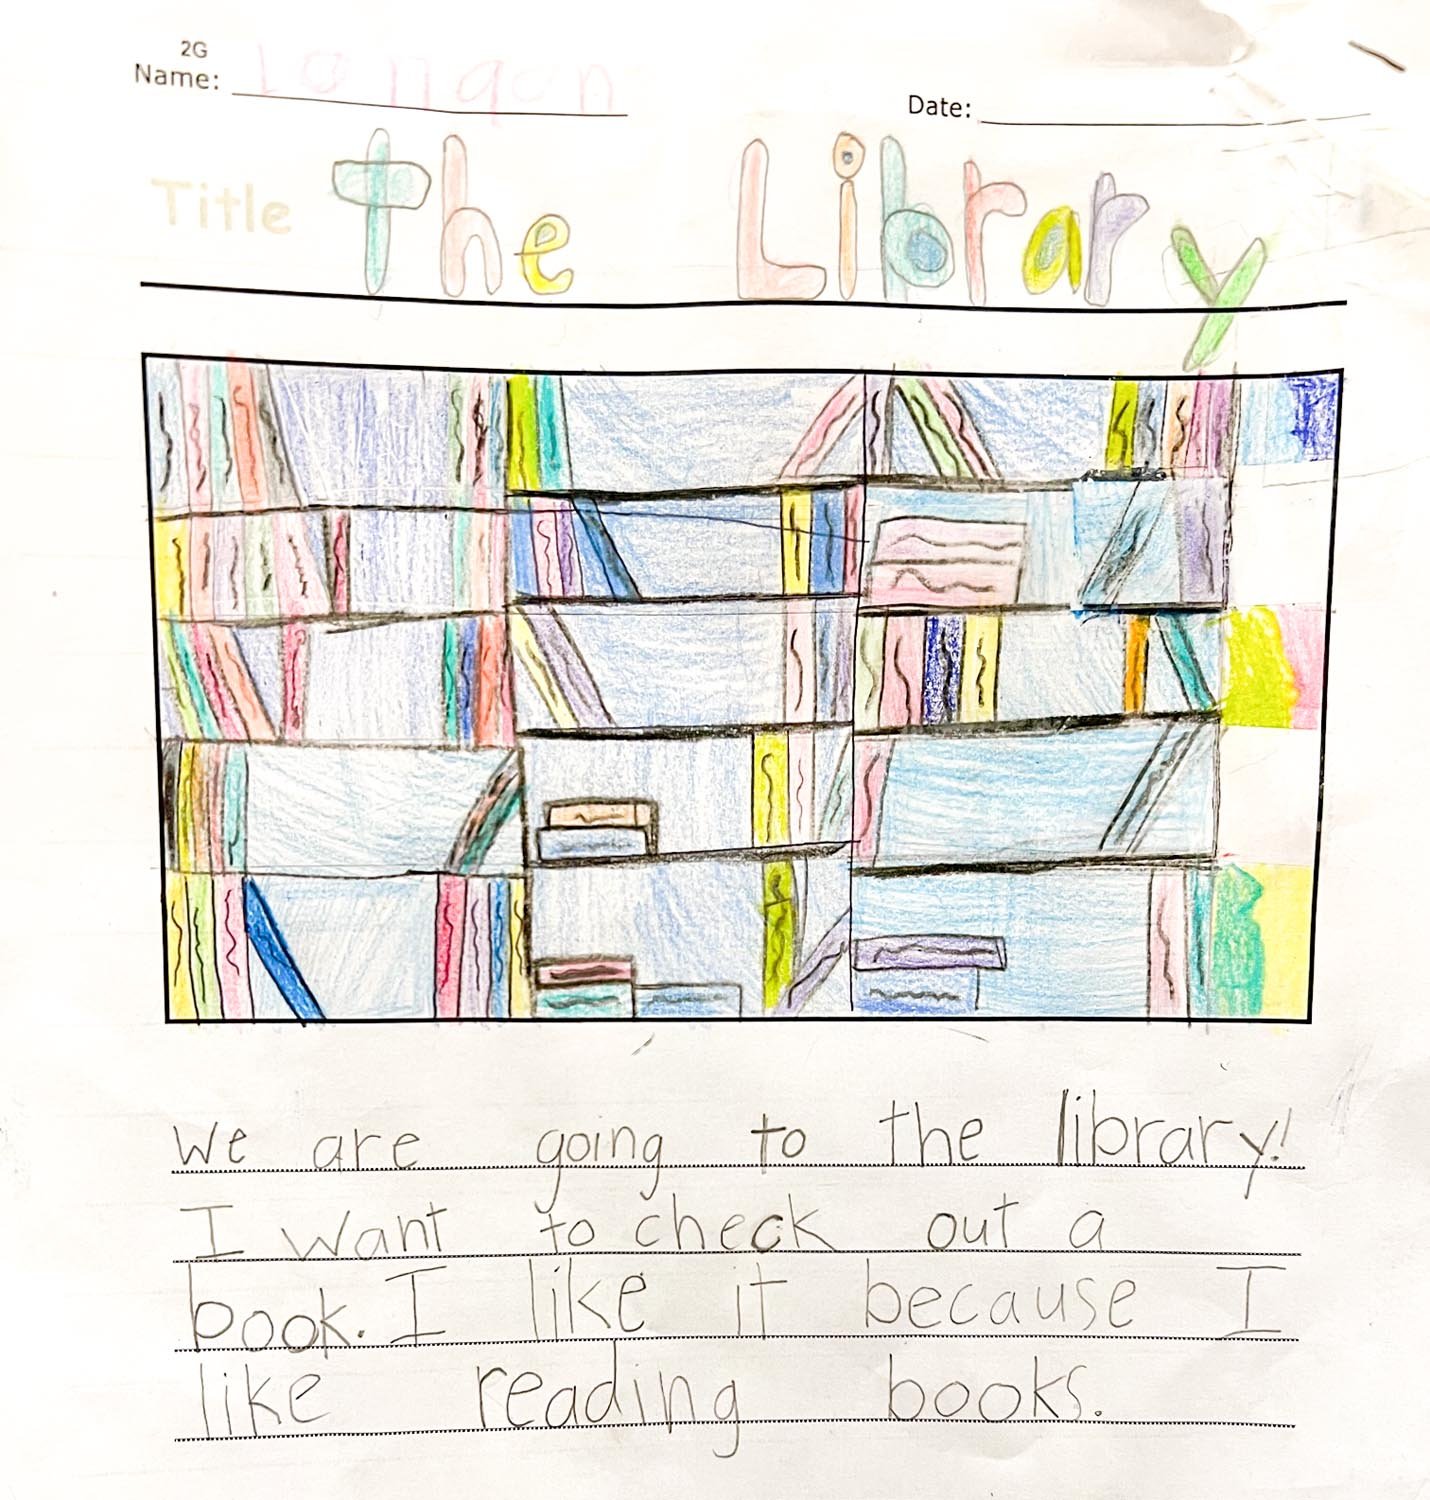 2G
Name:
Date:
Title The Library
We are going to the library!
I want to check out a
book. I like it because I
like reading books.